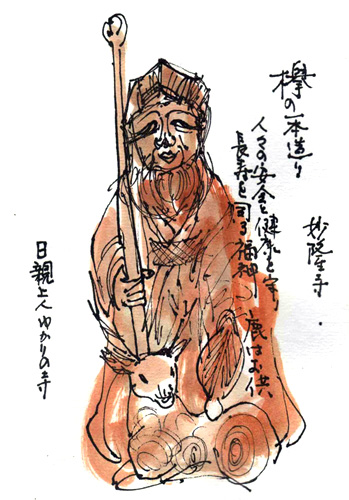 妙隆寺
欅の一本造り
人々の安全と健康を守り
長寿を司る福神
鹿はお供
日親上人ゆかりの寺